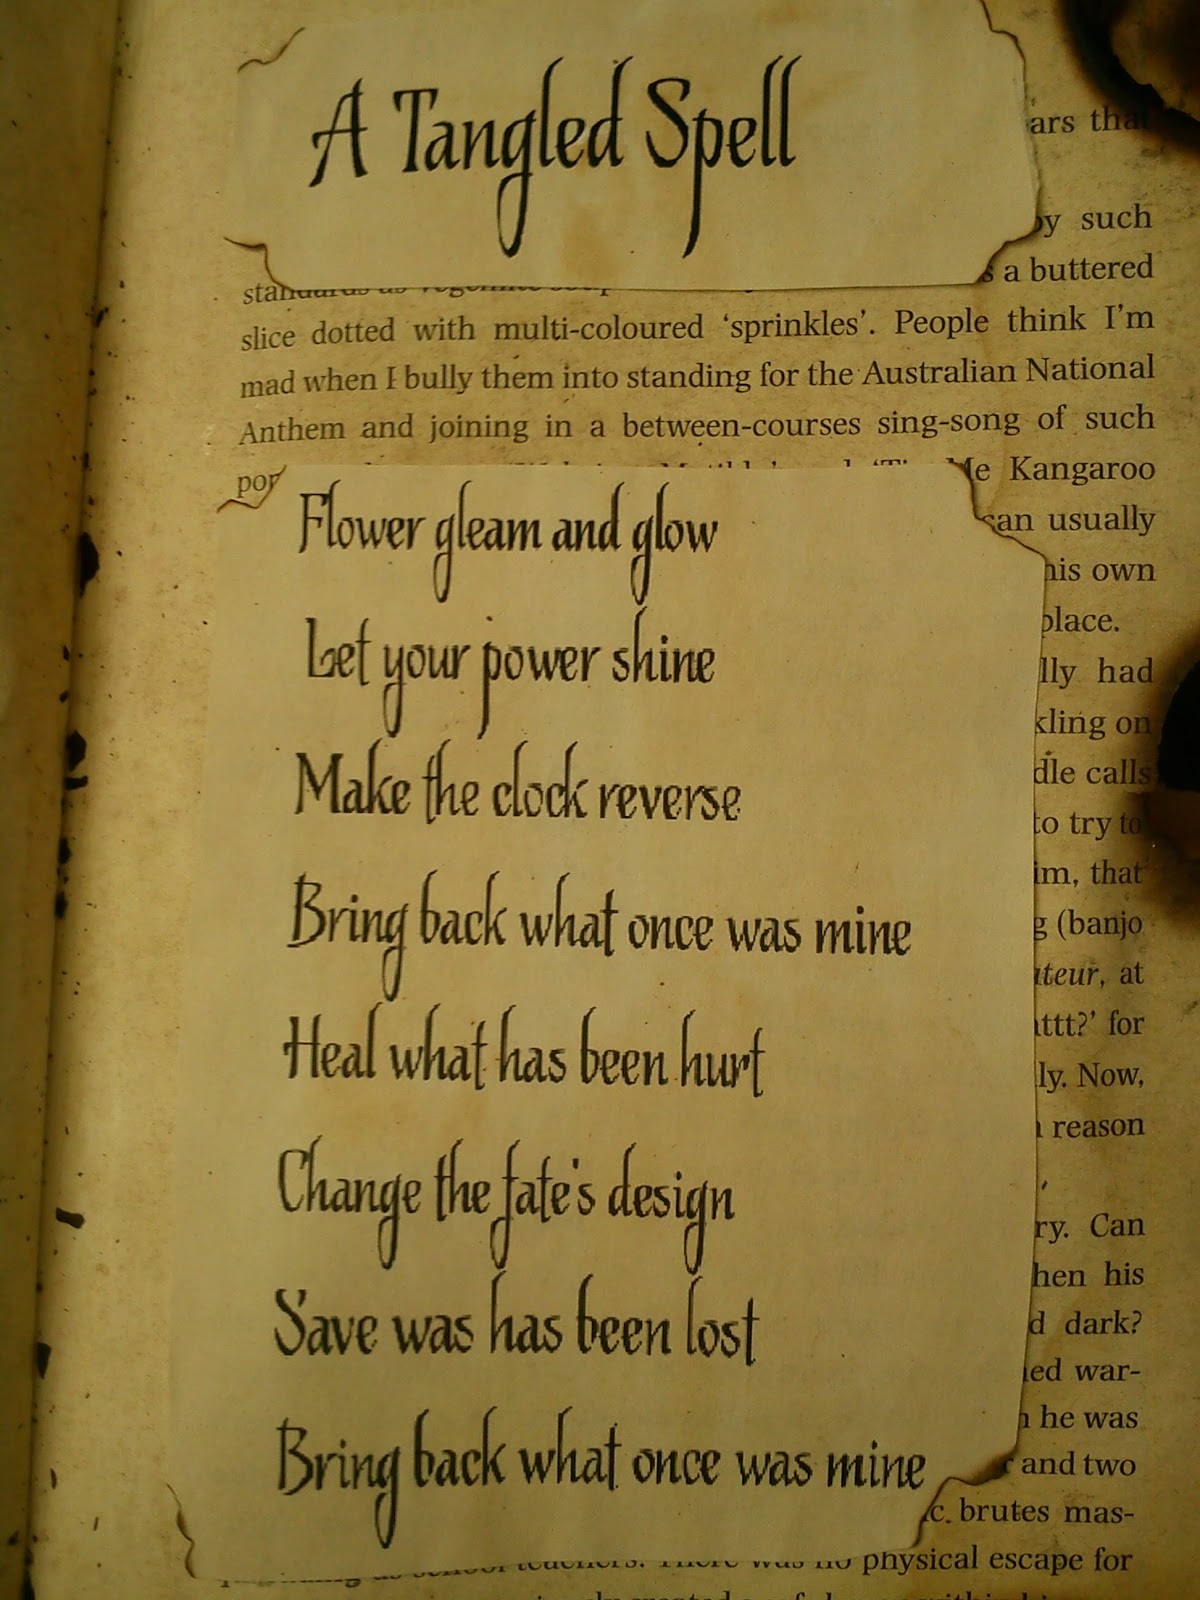 A Tangled Spell
ars that
by such
standards as vegemite s a buttered
slice dotted with multi-coloured ‘sprinkles’. People think I’m
mad when I bully them into standing for the Australian National
Anthem and joining in a between-courses sing-song of such
Me Kangaroo
Flower gleam and glow
can usually
his own
Let your power shine
place.
lly had
kling on
Make the clock reverse
dle calls
to try to
im, that
Bring back what once was mine
g (banjo
ateur, at
Heal what has been hurt
attt?’ for
ly. Now,
reason
Change the fate's design
ry. Can
hen his
Save was has been lost
d dark?
ed war-
he was
Bring back what once was mine
and two
c. brutes mas-
school teachers. There was no physical escape for